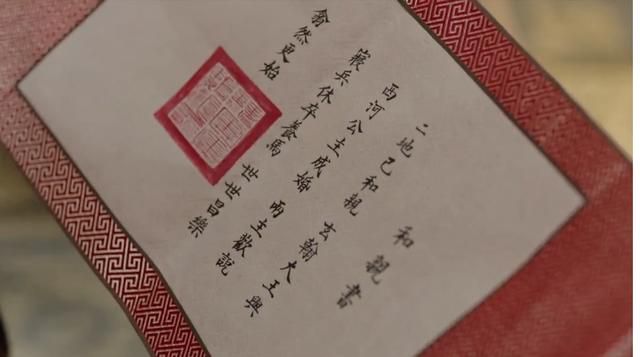 和親書
二地已和親 玄翰大王與
西河公主成婚 兩主歡說
寢兵休卒養馬 世世昌樂
翕然更始